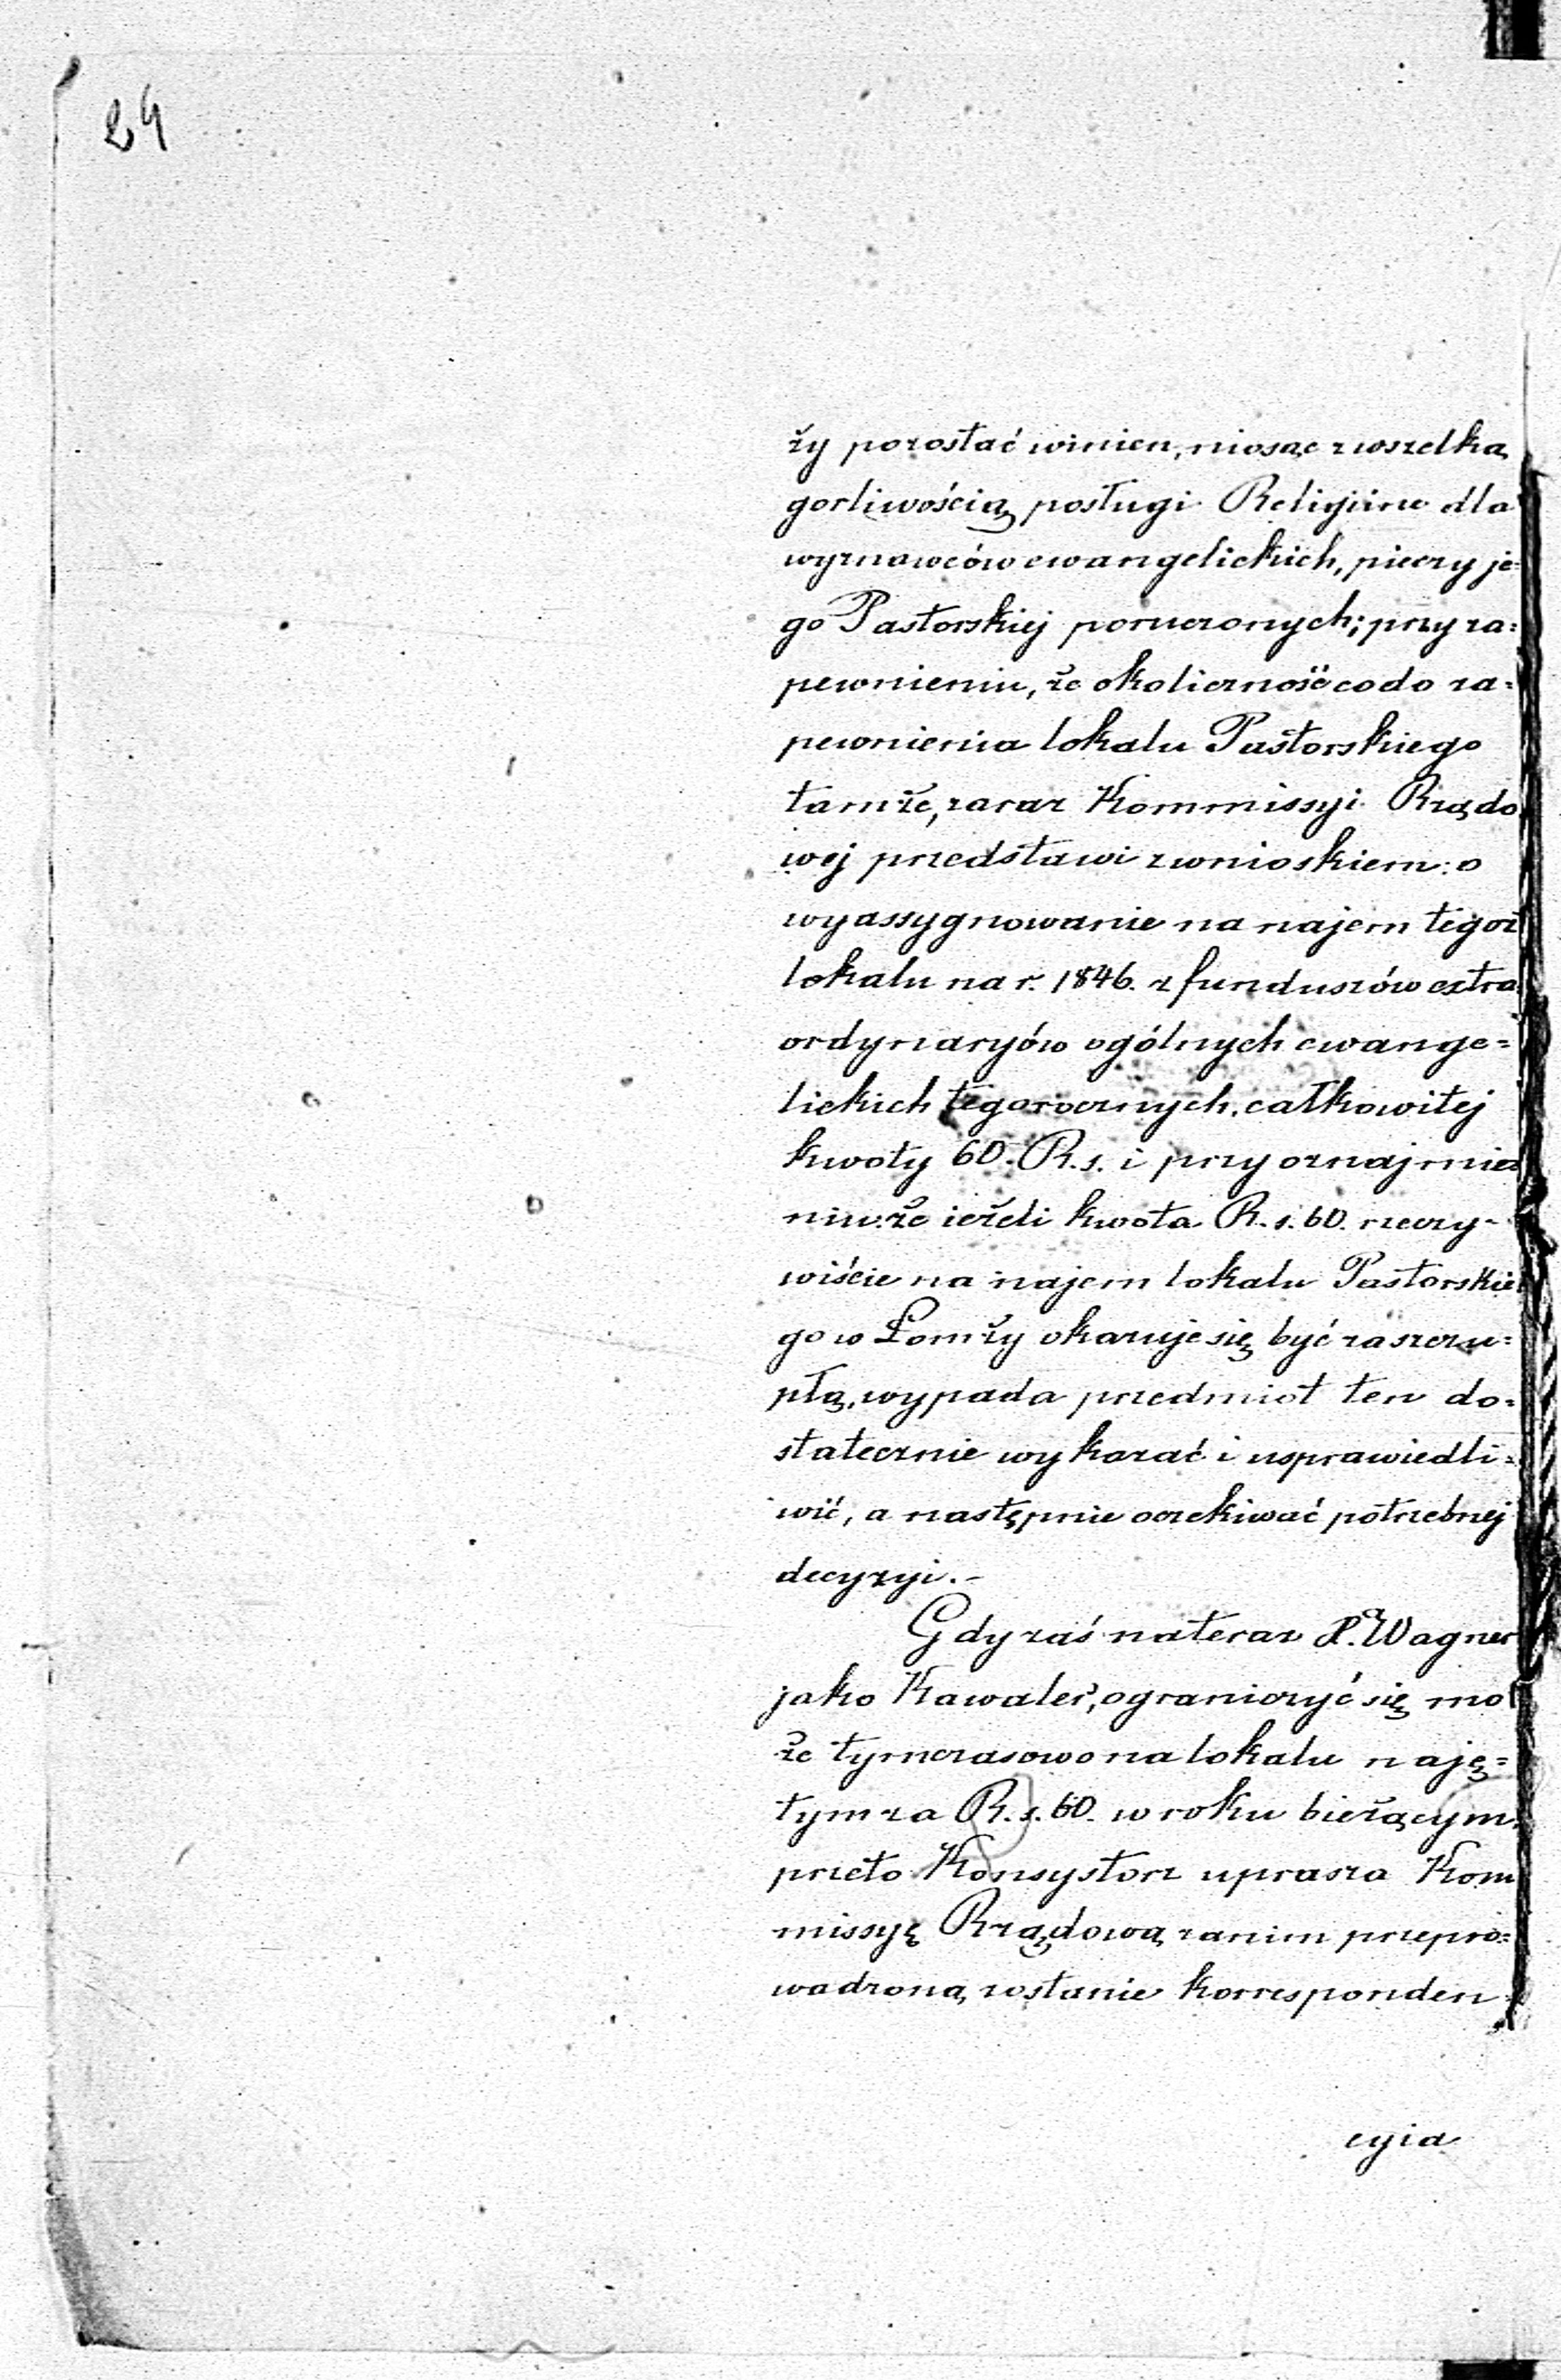 24
ży pozostać winien, niosąc z wszelką
gorliwością posługi Religijne dla
wyznawców ewangelickich, pieczy je=
go Pastorskiej poruczonych; przy za=
pewnieniu, że okoliczność co do za=
pewnienia lokalu Pastorskiego
tamże, zaraz Kommissyi Rządo
wej przedstawi z wnioskiem: o
wyassygnowanie na najem tegoż
lokalu na r. 1846. z funduszów extra
ordynaryów ogólnych ewange=
lickich tegorocznych, całkowitej
kwoty 60. R.s. i przy oznajmie=
niu: że ieżeli kwota R.s. 60. rzeczy-
wiście na najem lokalu Pastorskie
go w Łomży okazuje się być za szczu=
płą, wypada przedmiot ten do=
statecznie wykazać i usprawiedli=
wić, a następnie oczekiwać potrzebnej
decyzyi.-
Gdy zaś na teraz Wagner
jako Kawaler, ograniczyć się mo
że tymczasowo na lokalu naję=
tym za R.s. 60. w roku bieżącym,
przeto Konsystorz uprasza Kom
missyę Rządową zanim przepro=
wadzoną zostanie korresponden
cyia